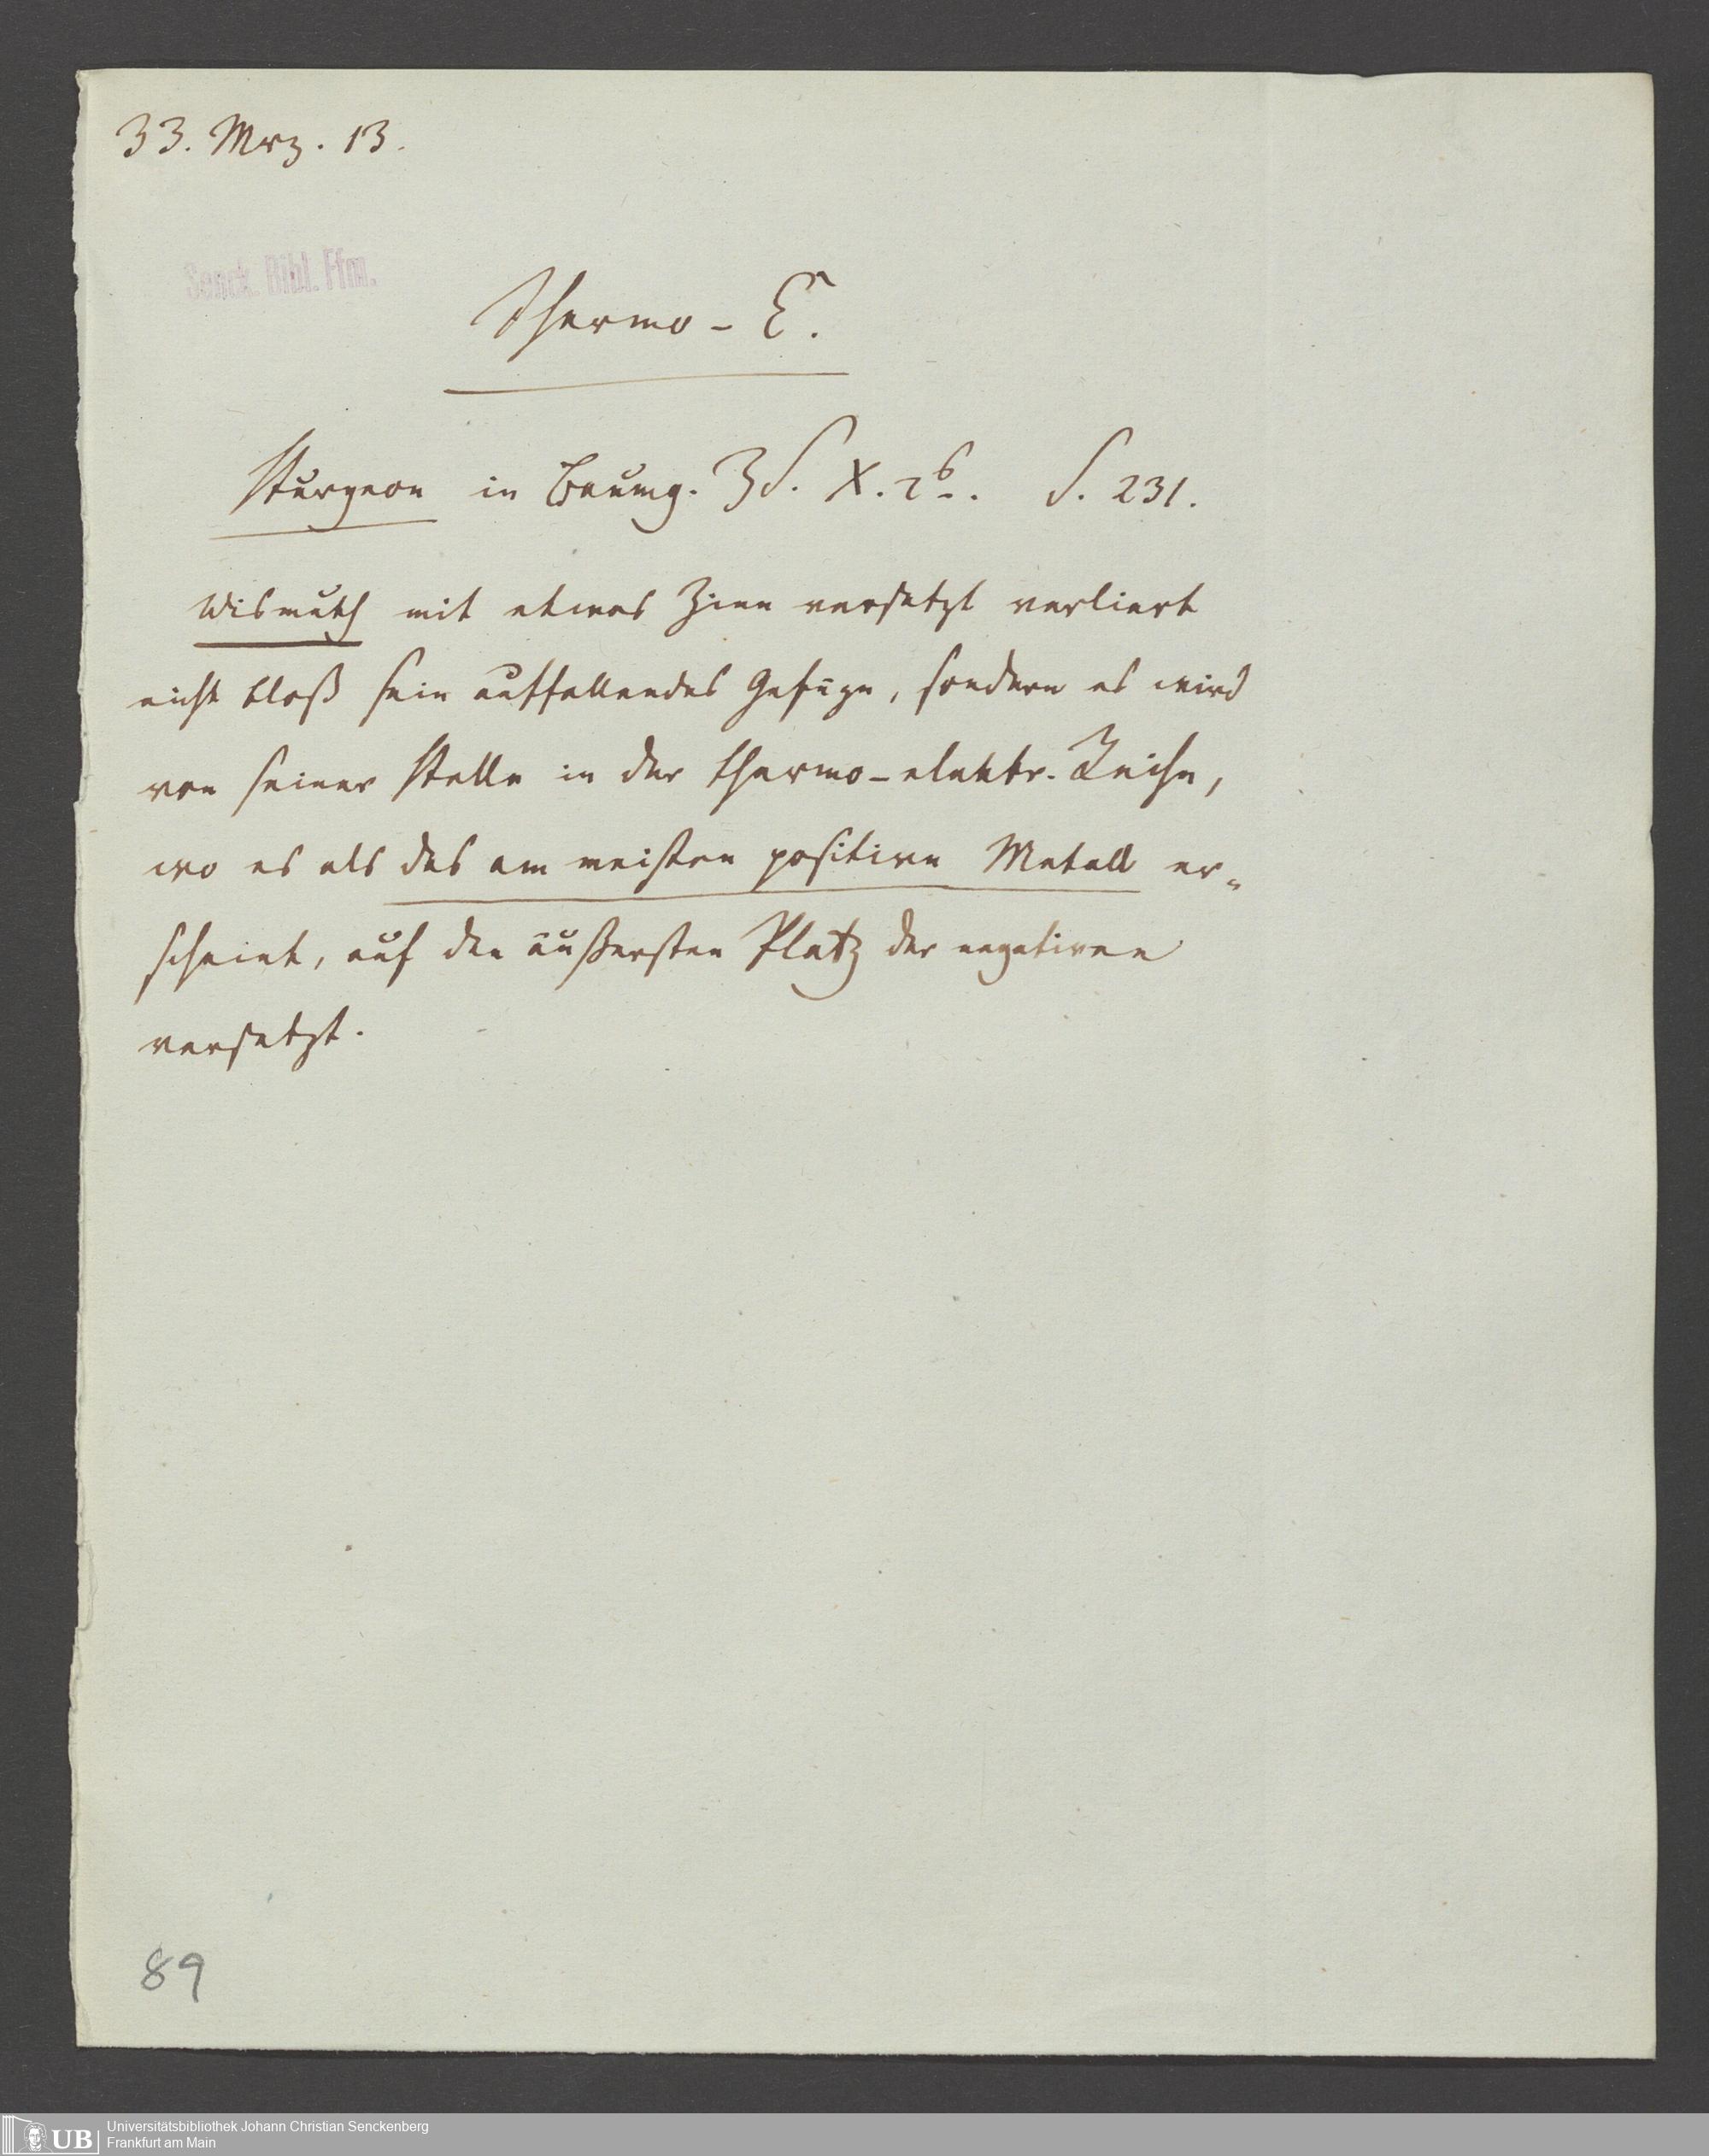 33. Mrz. 13.
Senck. Bibl. Ffm.
Thermo-E.
Sturgeon in Baumg. ZS. X. 2b. S. 231.
Wismuth mit etwas Zinn versetzt verliert
nicht bloß sein auffallendes Gefüge, sondern es wird
von seiner Stelle in der thermo-elektr. Reihe,
wo es als das am meisten positive Metall er-
scheint, auf den äußersten Platz der negativen
versetzt.
89
UB
Universitätsbibliothek Johann Christian Senckenberg
Frankfurt am Main